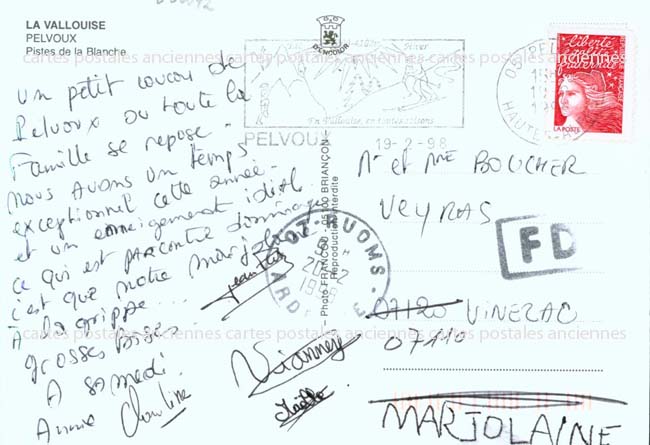 LA VALLOUISE
PELVOUX
Pistes de la Blanche
Un petit coucou de
Pelvoux où toute la
Famille se repose.
Nous avons un temps
exceptionnel cette année.
et un enneigement idéal
ce qui est par contre dommage
c'est que notre Marjolaine
à la grippe...
grosses Bises.
A samedi.
Annie Charline
Vianney
Joëlle
D'ENCOLOR
En Vallouise, en toutes saisons
PELVOUX 19-2-98
05 PELVOUX
HAUTES
liberté
égalité
fraternité
LA POSTE
Photo FRANCOU - 05100 BRIANÇON
Reproduction interdite
RUOMS
20-2
1998
ARDECHE
Mr et Mme BOUCHER
VEYRAS
FD
07120 VINEZAC
07110
MARJOLAINE
cartes postales anciennes cartes postales anciennes cartes postales anciennes
cartes postales anciennes cartes postales anciennes cartes postales anciennes